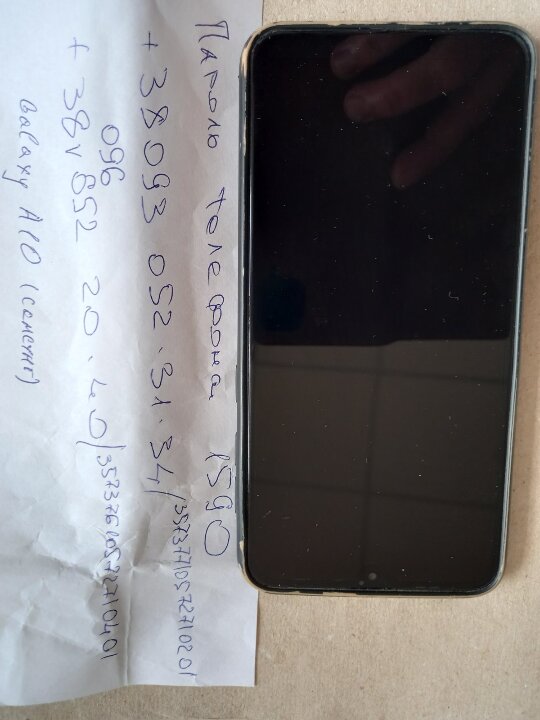 Пароль телефона 1590
+38093 052.31.34/357377105727102 01
096
+38 v 852 20.40/357376105727104 01
Galaxy A10 (самсунг)